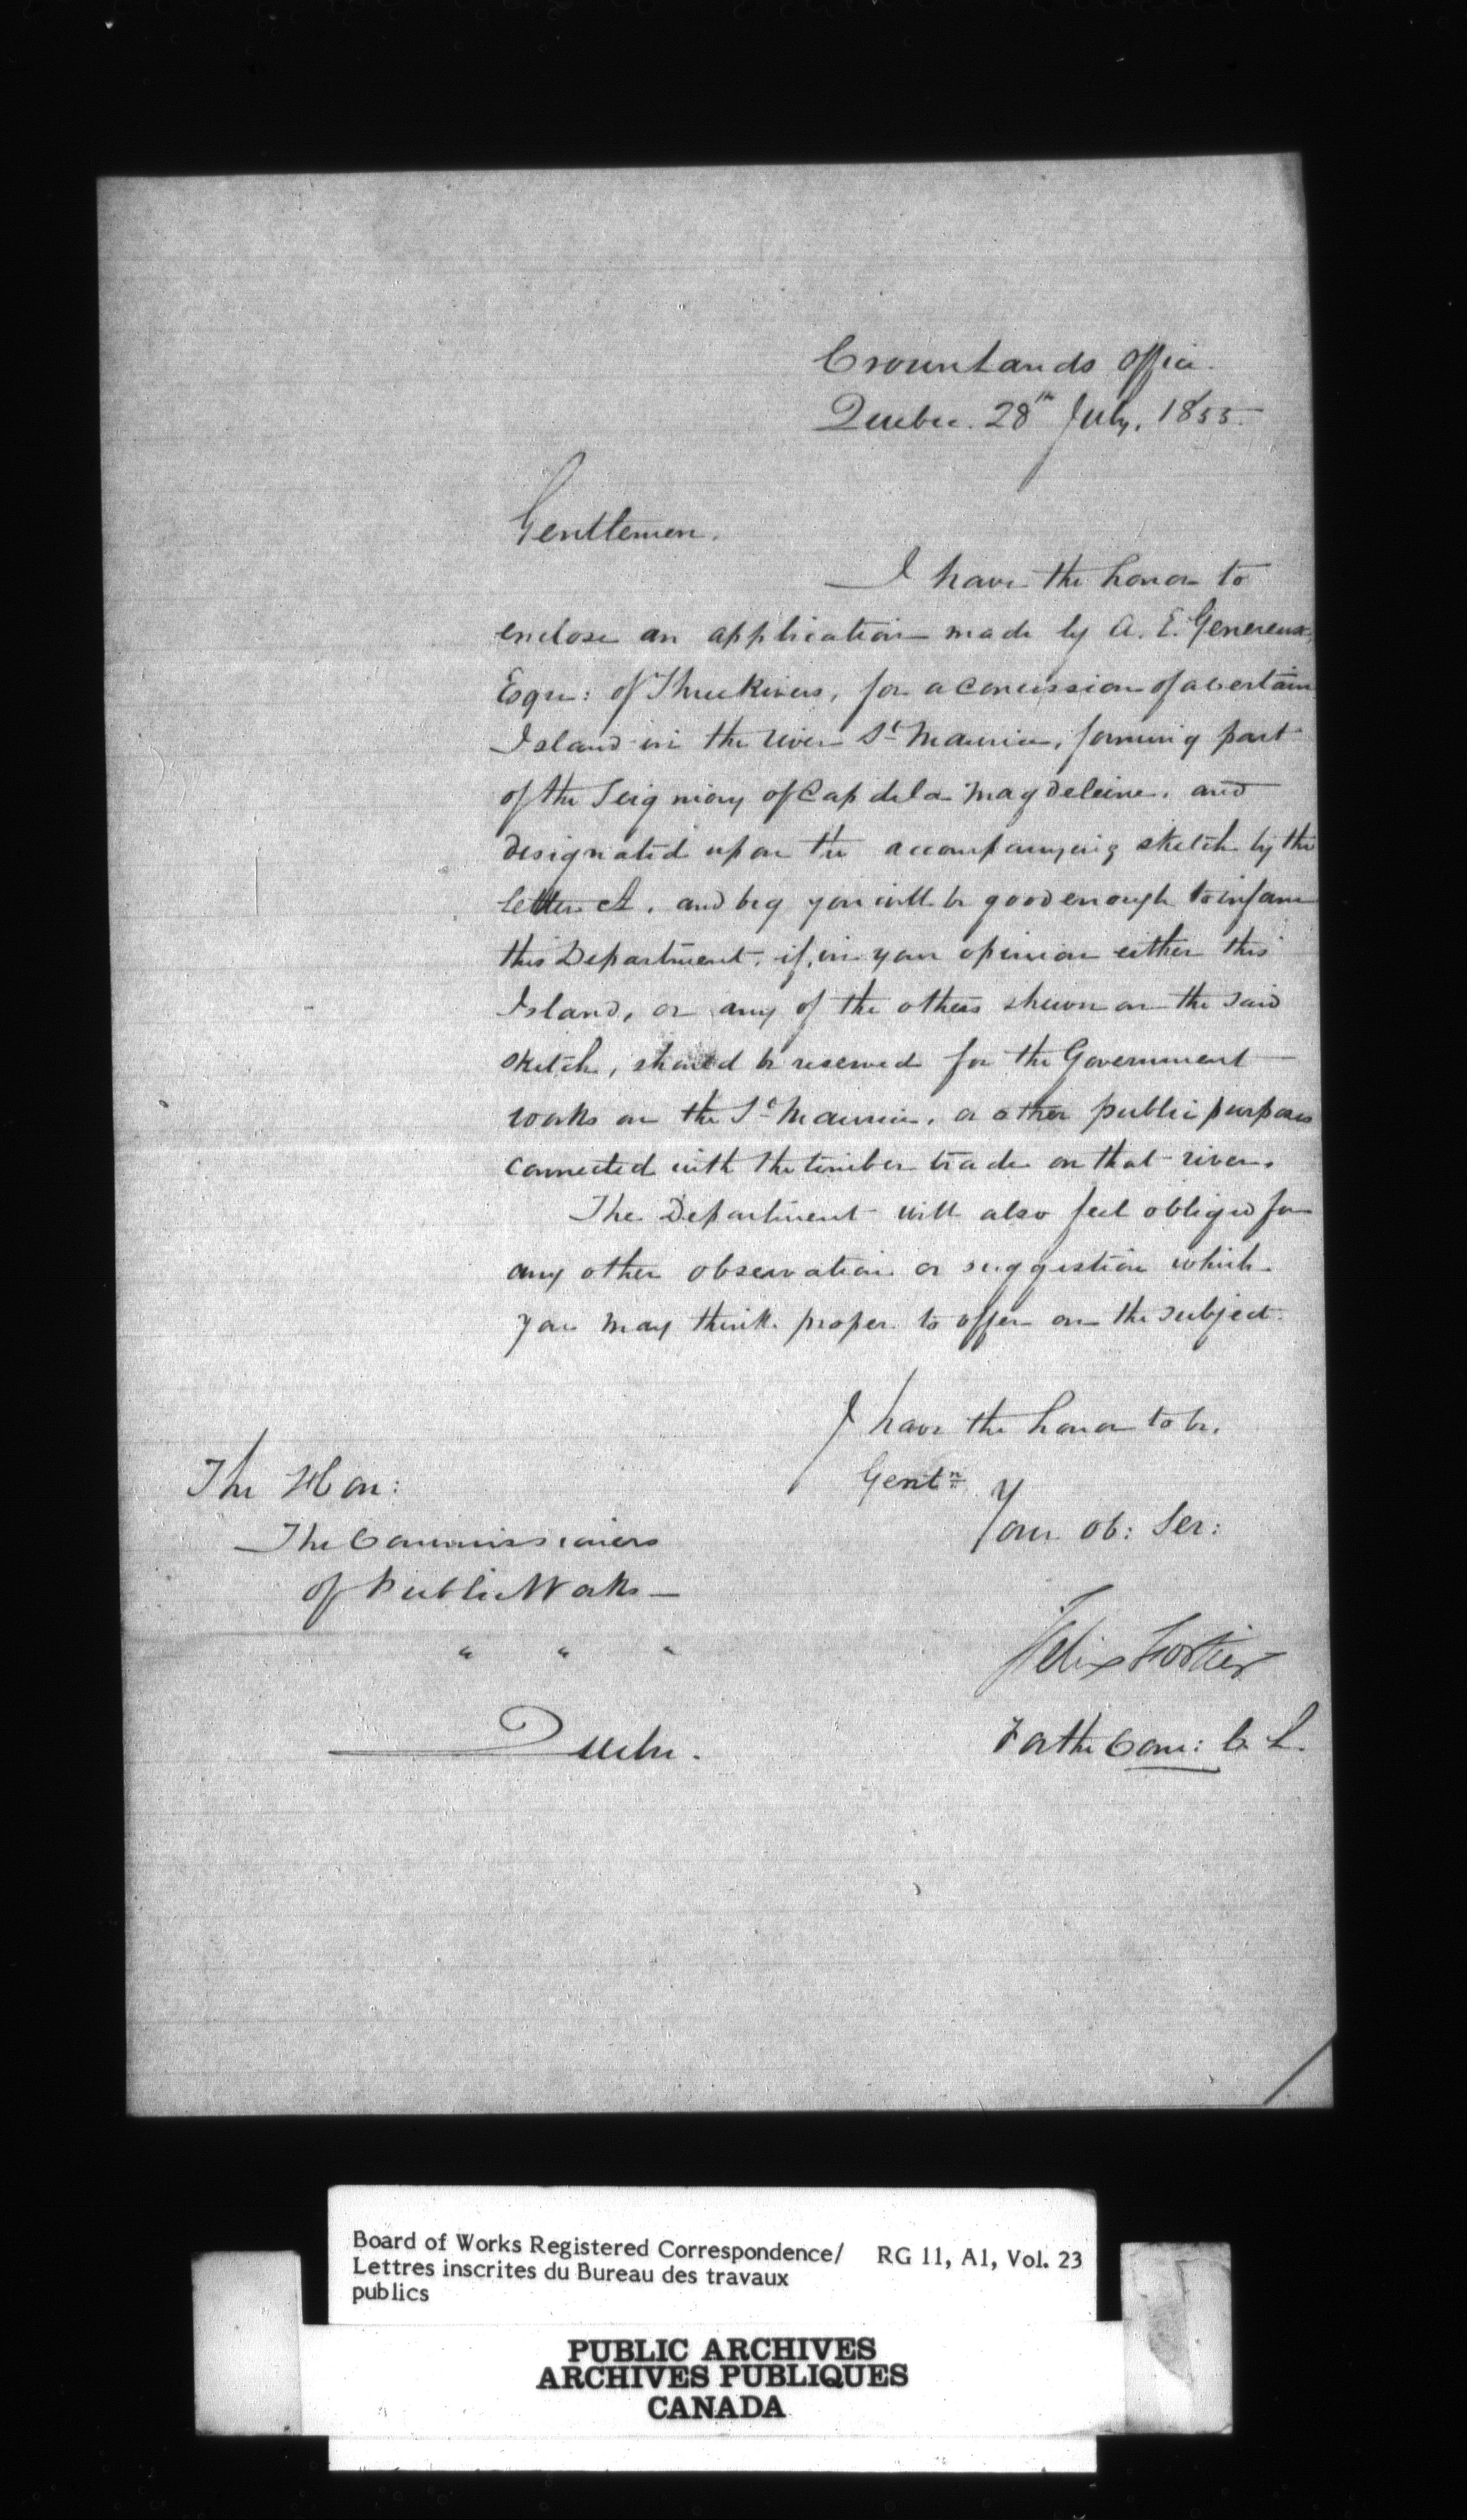 Crown Lands Office.
Quebec. 28th July, 1855.
Gentlemen.
I have the honor to
enclose an application made by A. E. Genereux,
Esqre: of Three Rivers, for a concession of a certain
Island in the river St Maurice, forming part
of the Seigniory of Cap de la Magdeleine, and
designated upon the accompanying sketch by the
letter A. and beg you will be good enough to inform
this Department, if, in your opinion either this
Island, or any of the others shewn on the said
sketch, should be reserved for the Government
works on the St Maurice, or other public purposes
connected with the timber trade on that river.
The Department will also feel obliged for
any other observation or suggestion which
you may think proper to offer on the subject.
I have the honor to be,
Gentn
Your Ob: Ser:
The Hon:
The Commissioners
of Public Works —
" " "
Quebec.
Felix Fortier
For the Com: C. L.
Board of Works Registered Correspondence/ RG 11, A1, Vol. 23
Lettres inscrites du Bureau des travaux
publics
PUBLIC ARCHIVES
ARCHIVES PUBLIQUES
CANADA